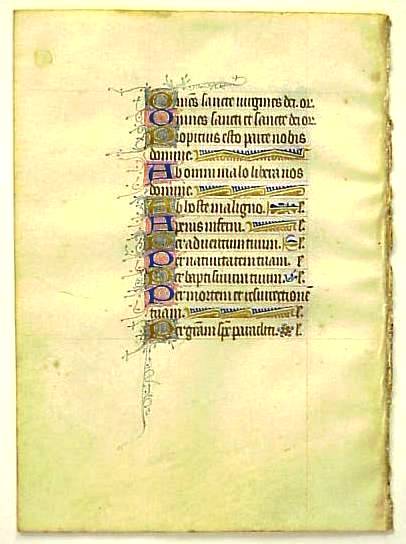 Omnes sancte virgines dei. or.
Omnes sancti et sancte dei or.
Propicius esto parce nobis
domine.
Ab omni malo libera nos
domine
Ab hoste maligno. l.
A penis inferni. l.
Per adventum tuum. l.
Per nativitatem tuam. l
Per baptismum tuum. l.
Per mortem et resurrectionē
tuam. l.
Per grām sp̄s paracliti. l.